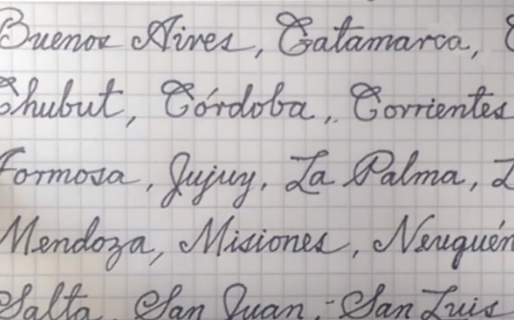 Buenos Aires, Catamarca, C
Chubut, Córdoba, Corrientes
Formosa, Jujuy, La Palma, L
Mendoza, Misiones, Neuquén
Salta, San Juan, San Luis